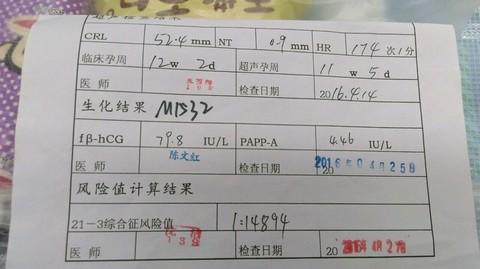 CRL 52.4 mm NT 0.9 mm HR 174 次1分
临床孕周 12 w 2 d 超声孕周 11 w 5 d
医师 检查日期 2016.4.14
生化结果 M1532
fβ-hCG 79.8 IU/L PAPP-A 4.46 IU/L
医师 陈文红 检查日期 2016年04月25日
风险值计算结果
21-3综合征风险值 1:14894
医师 检查日期 20